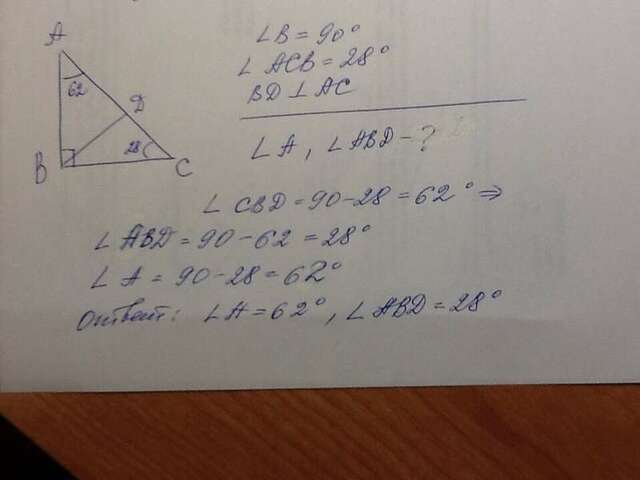 A
62
D
B
28
C
∠B = 90°
∠ACB = 28°
BD ⊥ AC
∠A, ∠ABD - ?
∠CBD = 90 - 28 = 62° ⇒
∠ABD = 90 - 62 = 28°
∠A = 90 - 28 = 62°
Ответ: ∠A = 62°, ∠ABD = 28°